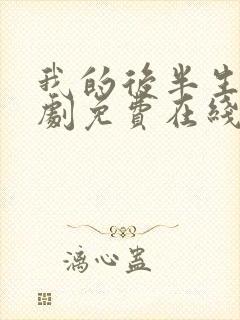 我的後半生
劇免費在綫
漓心蛊